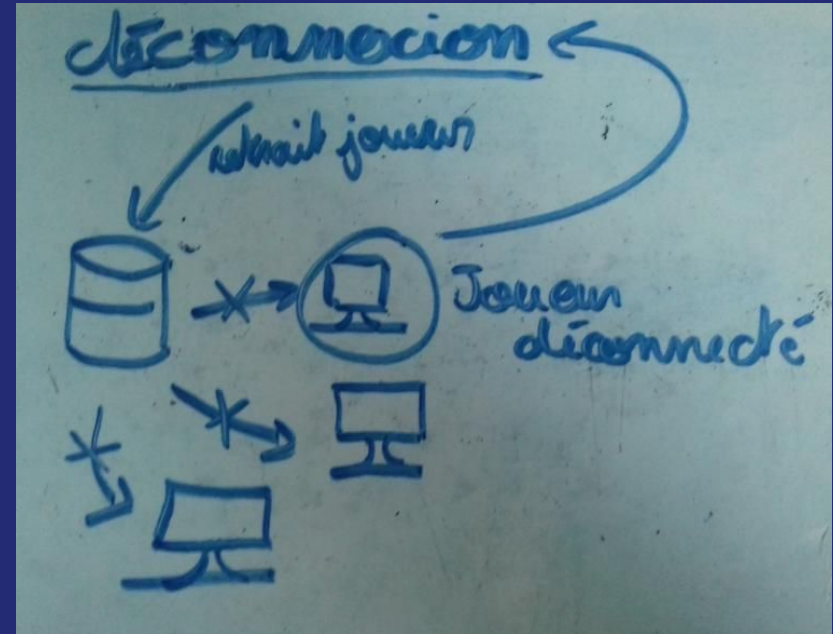 déconnocion
retrait joueur
Joueur
déconnecté